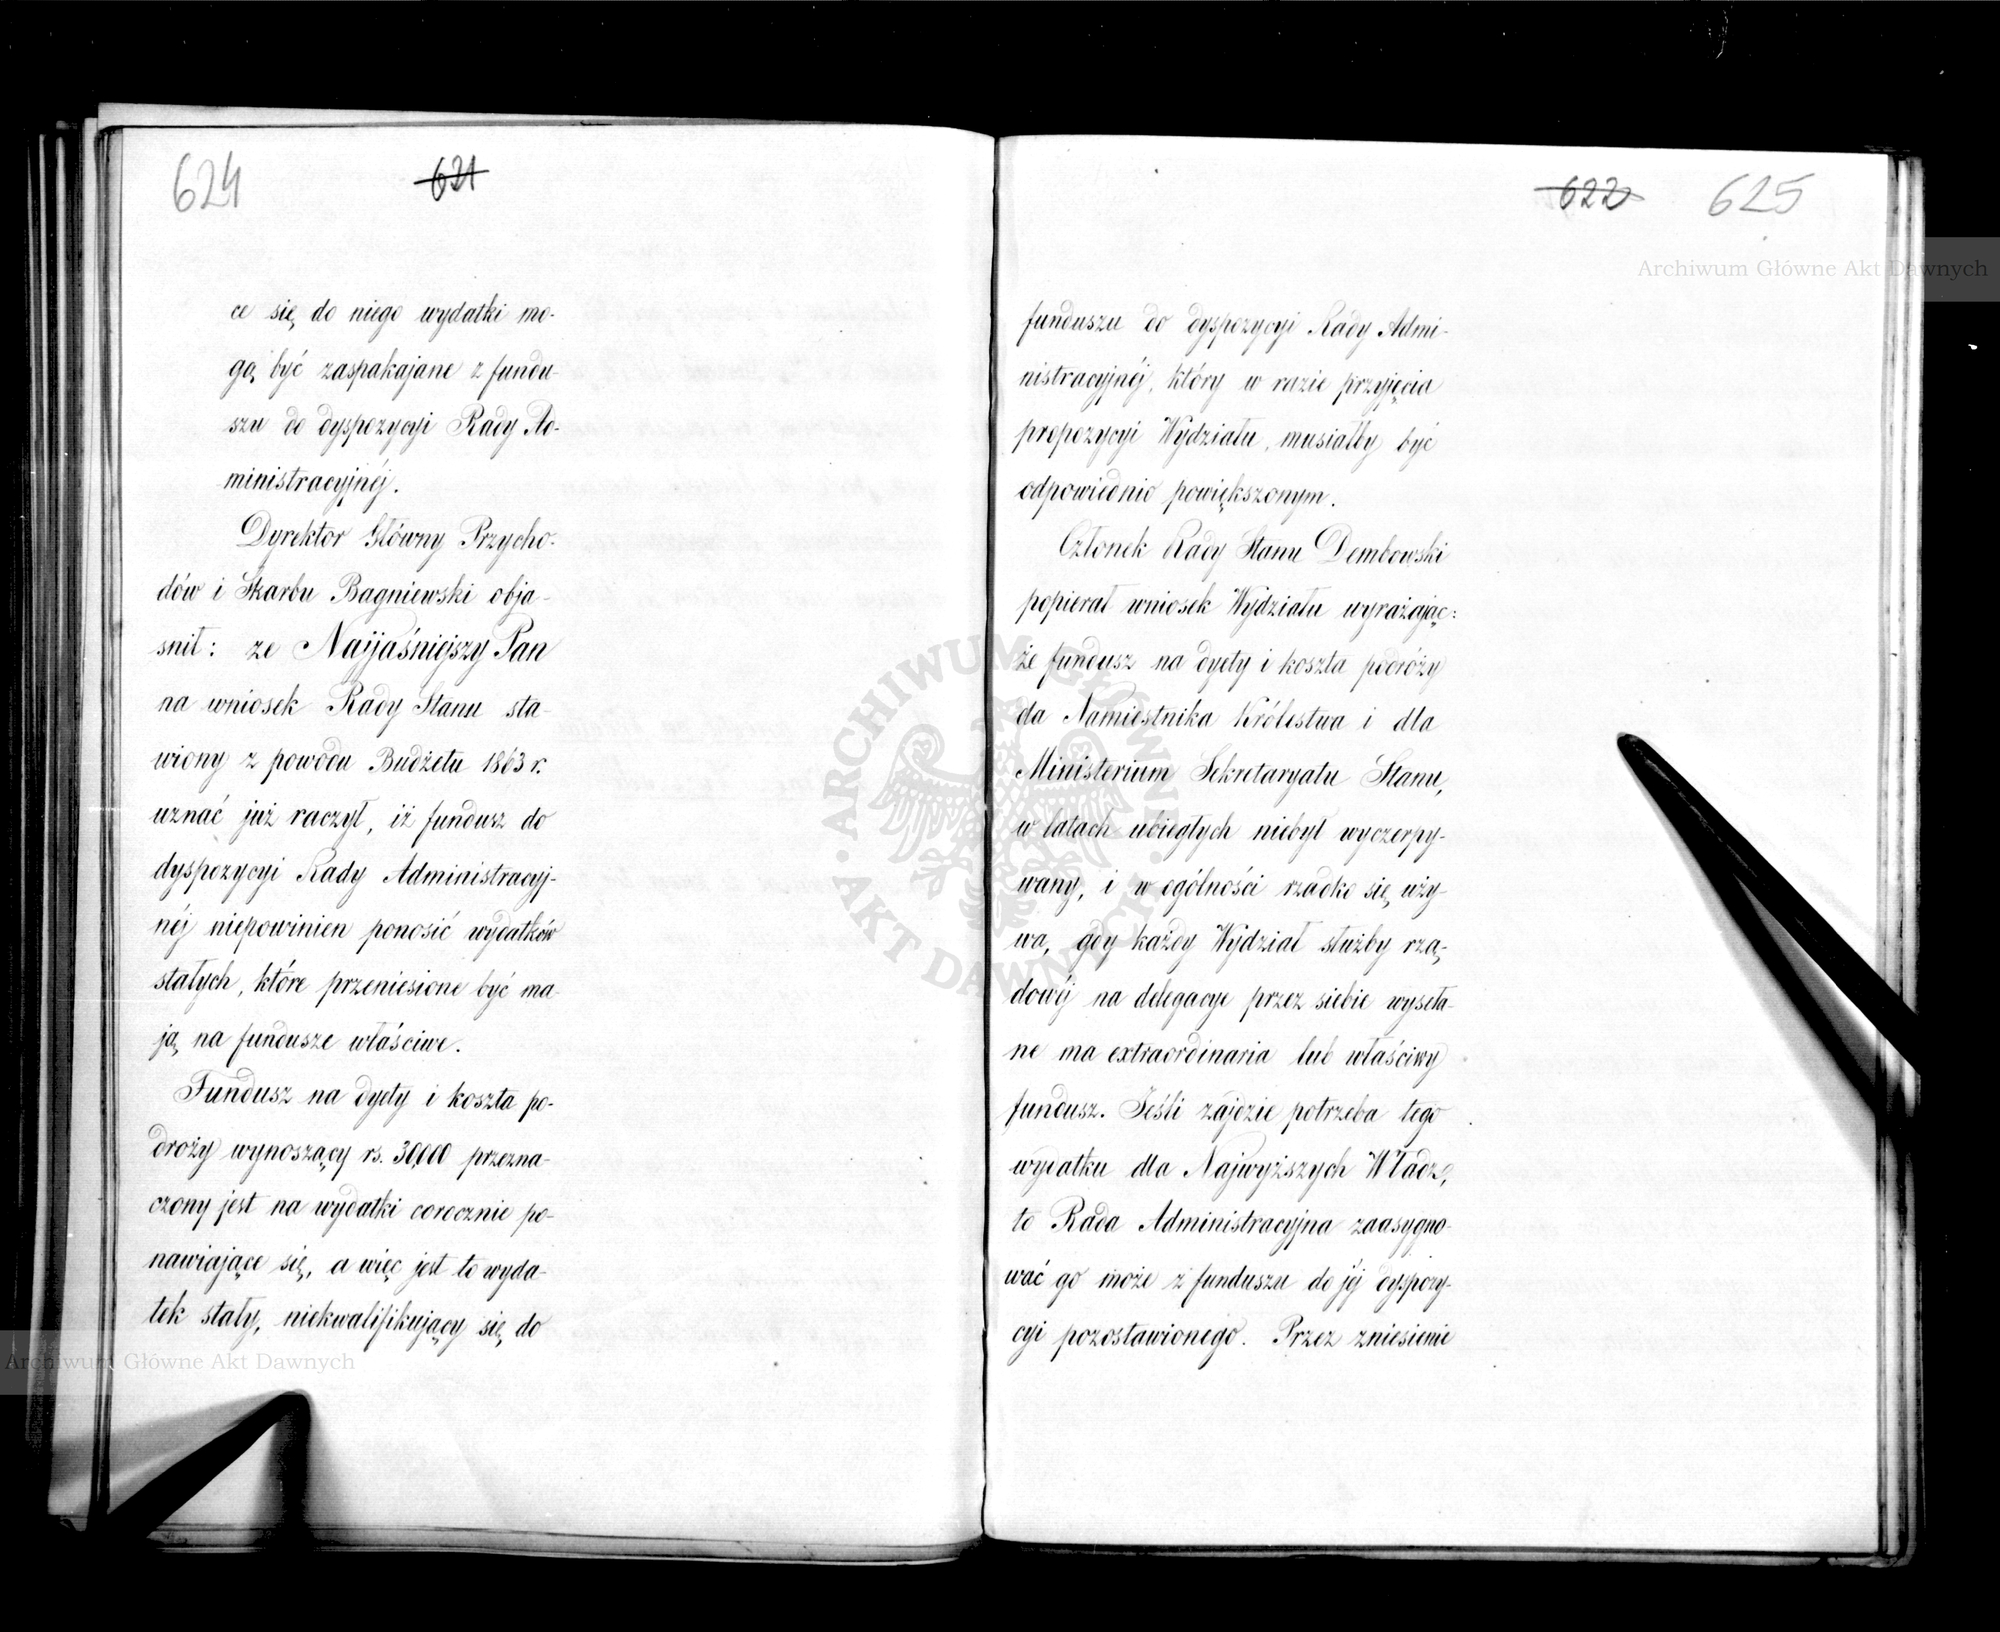 624
621
ce się do niego wydatki mo-
gą być zaspakajane z fundu-
szu do dyspozycyi Rady Ad-
ministracyjnéj.
Dyrektor Główny Przycho-
dów i Skarbu Bagniewski obja-
snił: że Najjaśniejszy Pan
na wniosek Rady Stanu sta-
wiony z powodu Budżetu 1863 r.
uznać już raczył, iż fundusz do
dyspozycyi Rady Administracyj-
néj niepowinien ponosić wydatków
stałych, które przeniesione być ma-
ją na fundusze właściwe.
Fundusz na dyety i koszta po-
droży wynoszący rs. 30,000 przezna-
czony jest na wydatki corocznie po-
nawiające się, a więc jest to wyda-
tek stały, niekwalifikujący się do
622 625
funduszu do dyspozycyi Rady Admi-
nistracyjnéj, który w razie przyjęcia
propozycyi Wydziału, musiałby być
odpowiednio powiększonym.
Członek Rady Stanu Dembowski
popierał wniosek Wydziału wyrażając:
że fundusz na dyety i koszta podróży
da Namiestnika Królestwa i dla
Ministerium Sekretaryatu Stanu,
w latach ubiegłych niebył wyczerpy-
wany, i w ogólności rzadko się uży-
wa, gdy każdy Wydział służby rzą-
dowéj na delegacye przez siebie wysła-
ne ma extraordinaria lub właściwy
fundusz. Jeśli zajdzie potrzeba tego
wydatku dla Najwyższych Władz,
to Rada Administracyjna zaasygno-
wać go może z funduszu do jéj dyspozy-
cyi pozostawionego. Przez zniesienie
Archiwum Główne Akt Dawnych
ARCHIWUM GŁÓWNE AKT DAWNYCH
Archiwum Główne Akt Dawnych